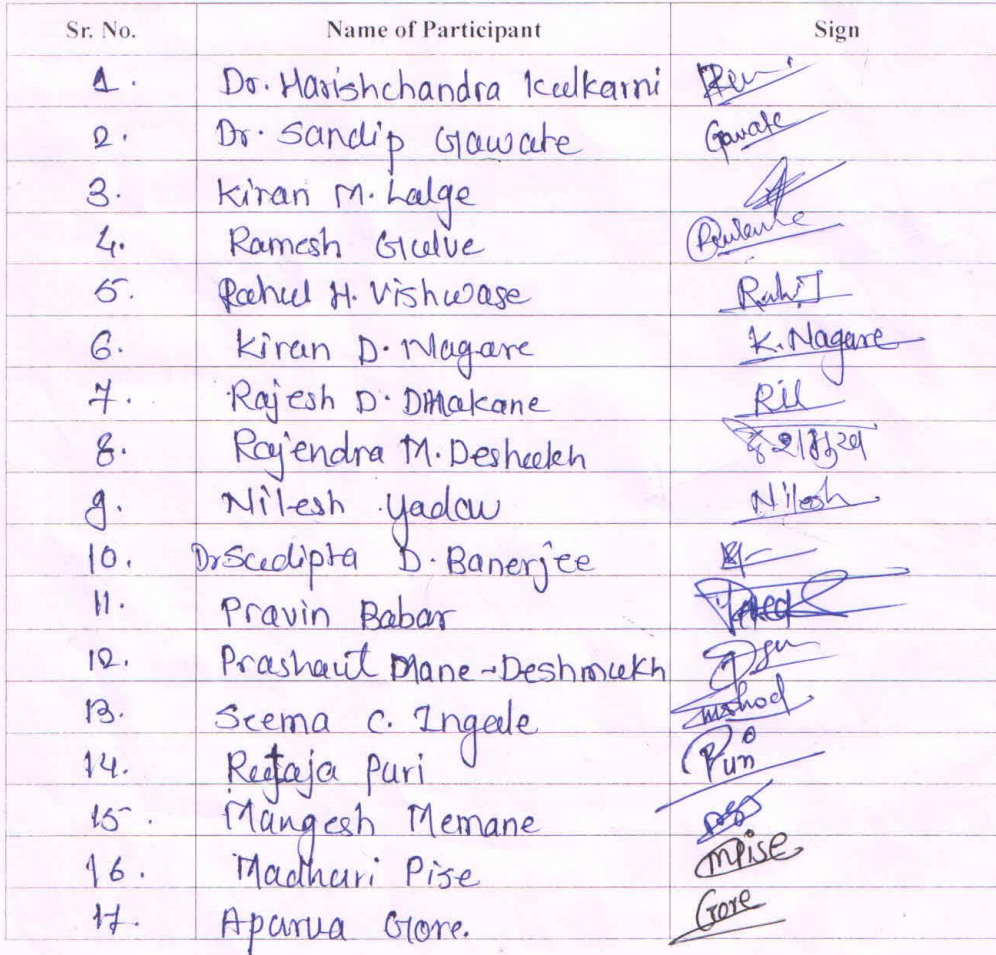 Sr. No. Name of Participant Sign
1. Dr. Harishchandra Kulkarni
2. Dr. Sandip Gawate Gawate
3. Kiran M. Lalge
4. Ramesh Gulve
5. Rahul H. Vishwase
6. Kiran D. Nagare K. Nagare
7. Rajesh D. Dhakane
8. Rajendra M. Deshukh
9. Nilesh Yadav Nilesh
10. Dr Sudipta D. Banerjee
11. Pravin Babar
12. Prashant Mane-Deshmukh
13. Seema C. Ingale
14. Rutaja Puri Puri
15. Mangesh Memane
16. Madhuri Pise MPise
17. Apurva Gore. Gore